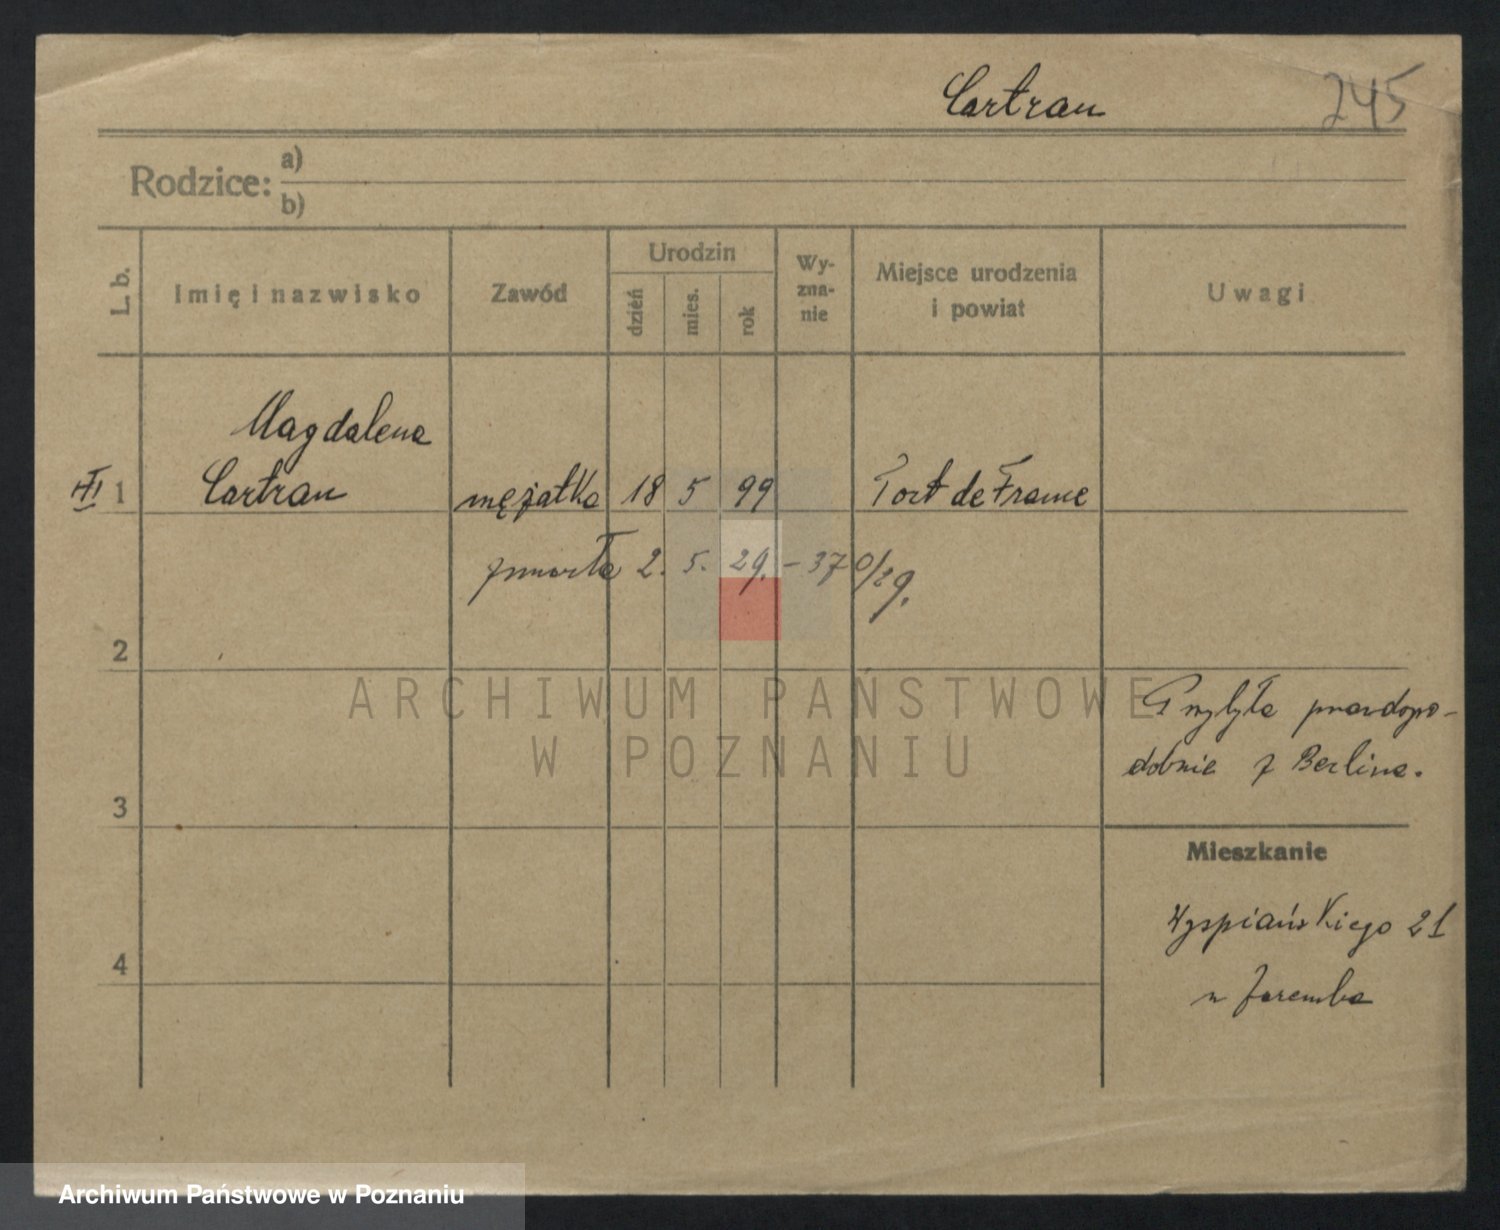 Cartrau 245
Rodzice: a)
b)
L. b. Imię i nazwisko Zawód Urodzin dzień mies. rok Wy-zna-nie Miejsce urodzenia i powiat Uwagi
Magdalena
1 Cartrau mężatka 18 5 99 Fort de France
zmarła 2. 5. 29. – 370/29.
2
ARCHIWUM PAŃSTWOWE
W POZNANIU
Przybyła prawdopo-
dobnie z Berlina.
3
Mieszkanie
Wyspiańskiego 21
4
u Zaremba
Archiwum Państwowe w Poznaniu